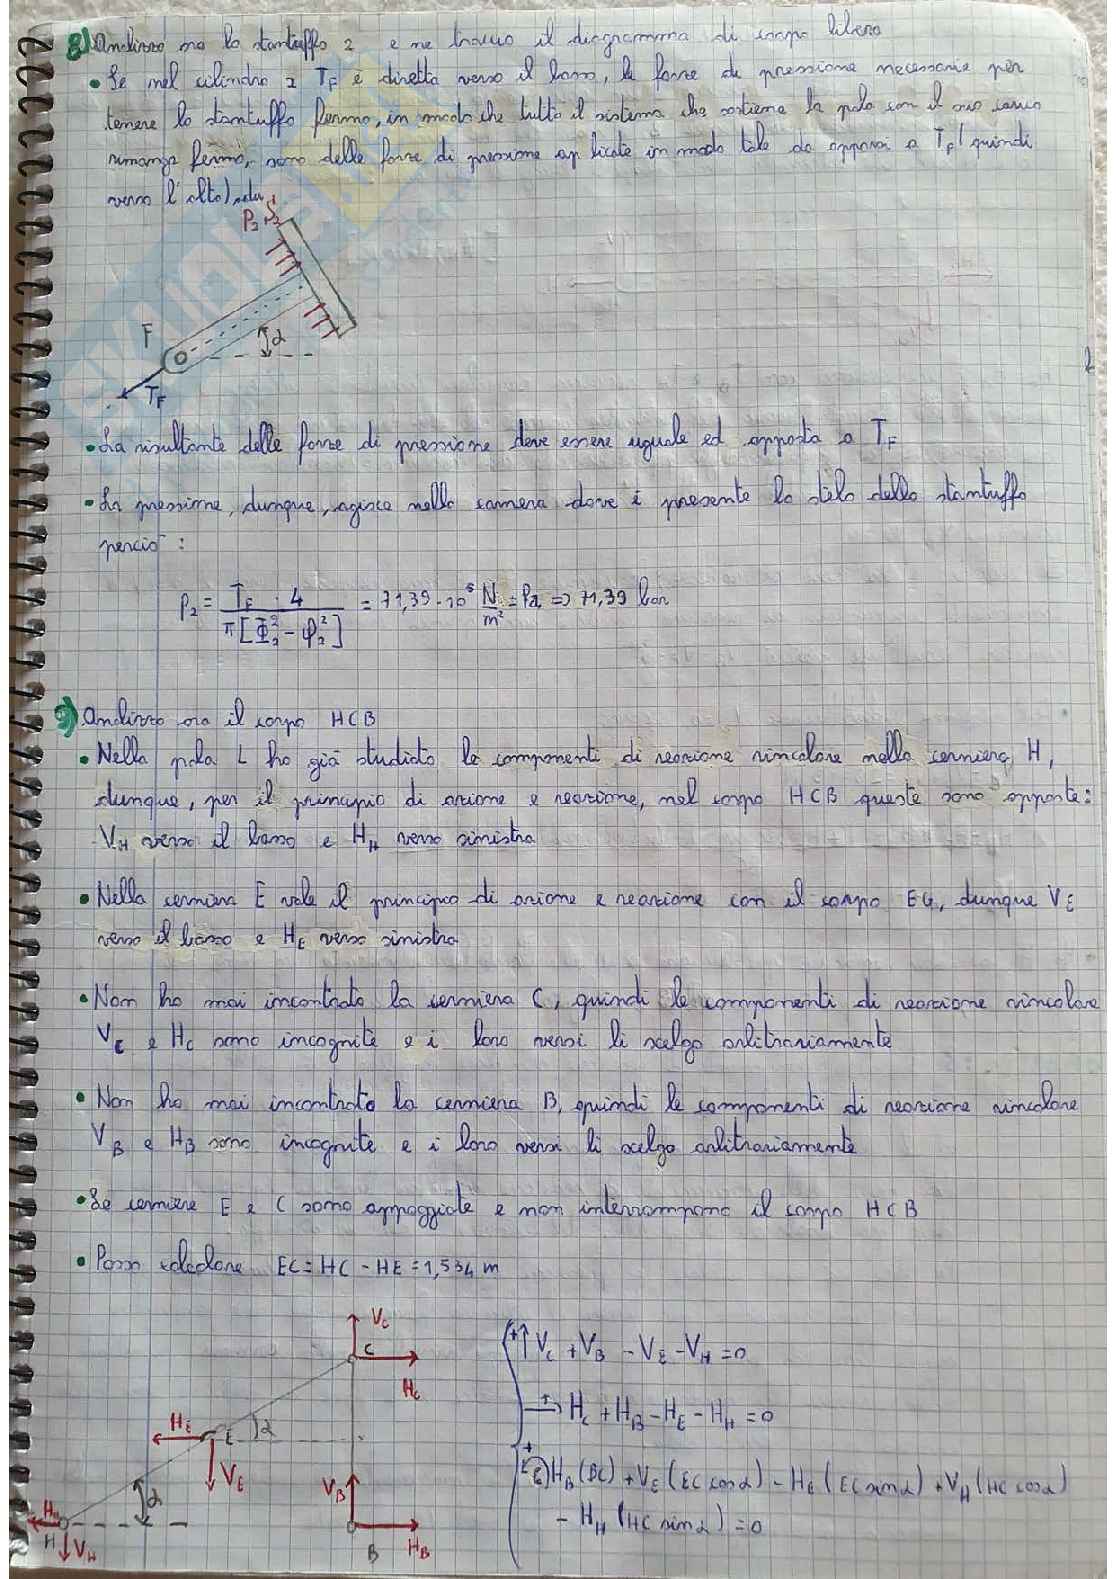 8) Analizzo ora lo stantuffo 2 e ne traccio il diagramma di corpo libero
• Se nel cilindro 2 T_F è diretta verso il basso, le forze di pressione necessarie per
tenere lo stantuffo fermo, in modo che tutto il sistema che sostiene la pala con il suo carico
rimanga fermo, sono delle forze di pressione applicate in modo tale da opporsi a T_F (quindi
verso l'alto)
P₂ S₂
F
α
T_F
• La risultante delle forze di pressione deve essere uguale ed opposta a T_F
• La pressione, dunque, agisce nella camera dove è presente lo stelo dello stantuffo
perciò:
P₂ = T_F · 4 / π[Φ₂² - φ₂²] = 71,39 · 10⁵ N/m² = Pa => 71,39 bar
9) Analizzo ora il corpo HCB
• Nella pala L ho già studiato le componenti di reazione vincolare nella cerniera H,
dunque, per il principio di azione e reazione, nel corpo HCB queste sono opposte:
V_H verso il basso e H_H verso sinistra
• Nella cerniera E vale il principio di azione e reazione con il corpo EG, dunque V_E
verso il basso e H_E verso sinistra
• Non ho mai incontrato la cerniera C, quindi le componenti di reazione vincolare
V_C e H_C sono incognite e i loro versi li scelgo arbitrariamente
• Non ho mai incontrato la cerniera B, quindi le componenti di reazione vincolare
V_B e H_B sono incognite e i loro versi li scelgo arbitrariamente
• Le cerniere E e C sono appoggiate e non interrompono il corpo HCB
• Posso calcolare EC = HC - HE = 1,534 m
V_C
C
H_C
H_E
E
α
V_E
V_B
α
H_H
H
V_H
B
H_B
+↑ V_C + V_B - V_E - V_H = 0
+→ H_C + H_B - H_E - H_H = 0
+ C) H_B (BC) + V_E (EC cosα) - H_E (EC sinα) + V_H (HC cosα)
- H_H (HC sinα) = 0